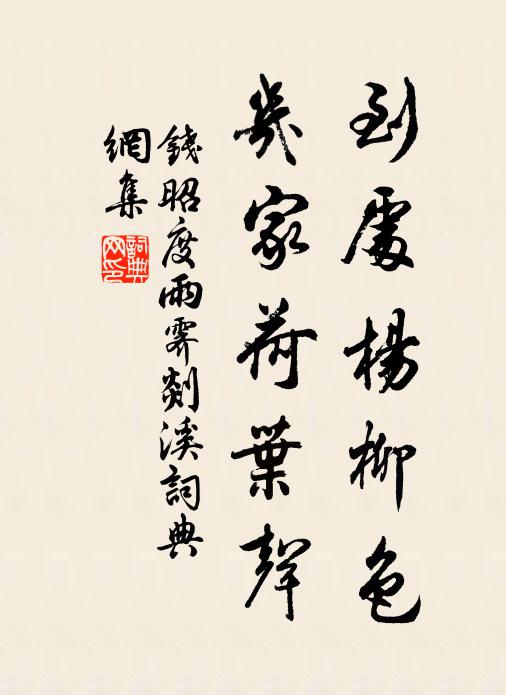 到處楊柳色
幾家荷葉聲
錢昭度雨霽剡溪詞典
網集
詞典網印